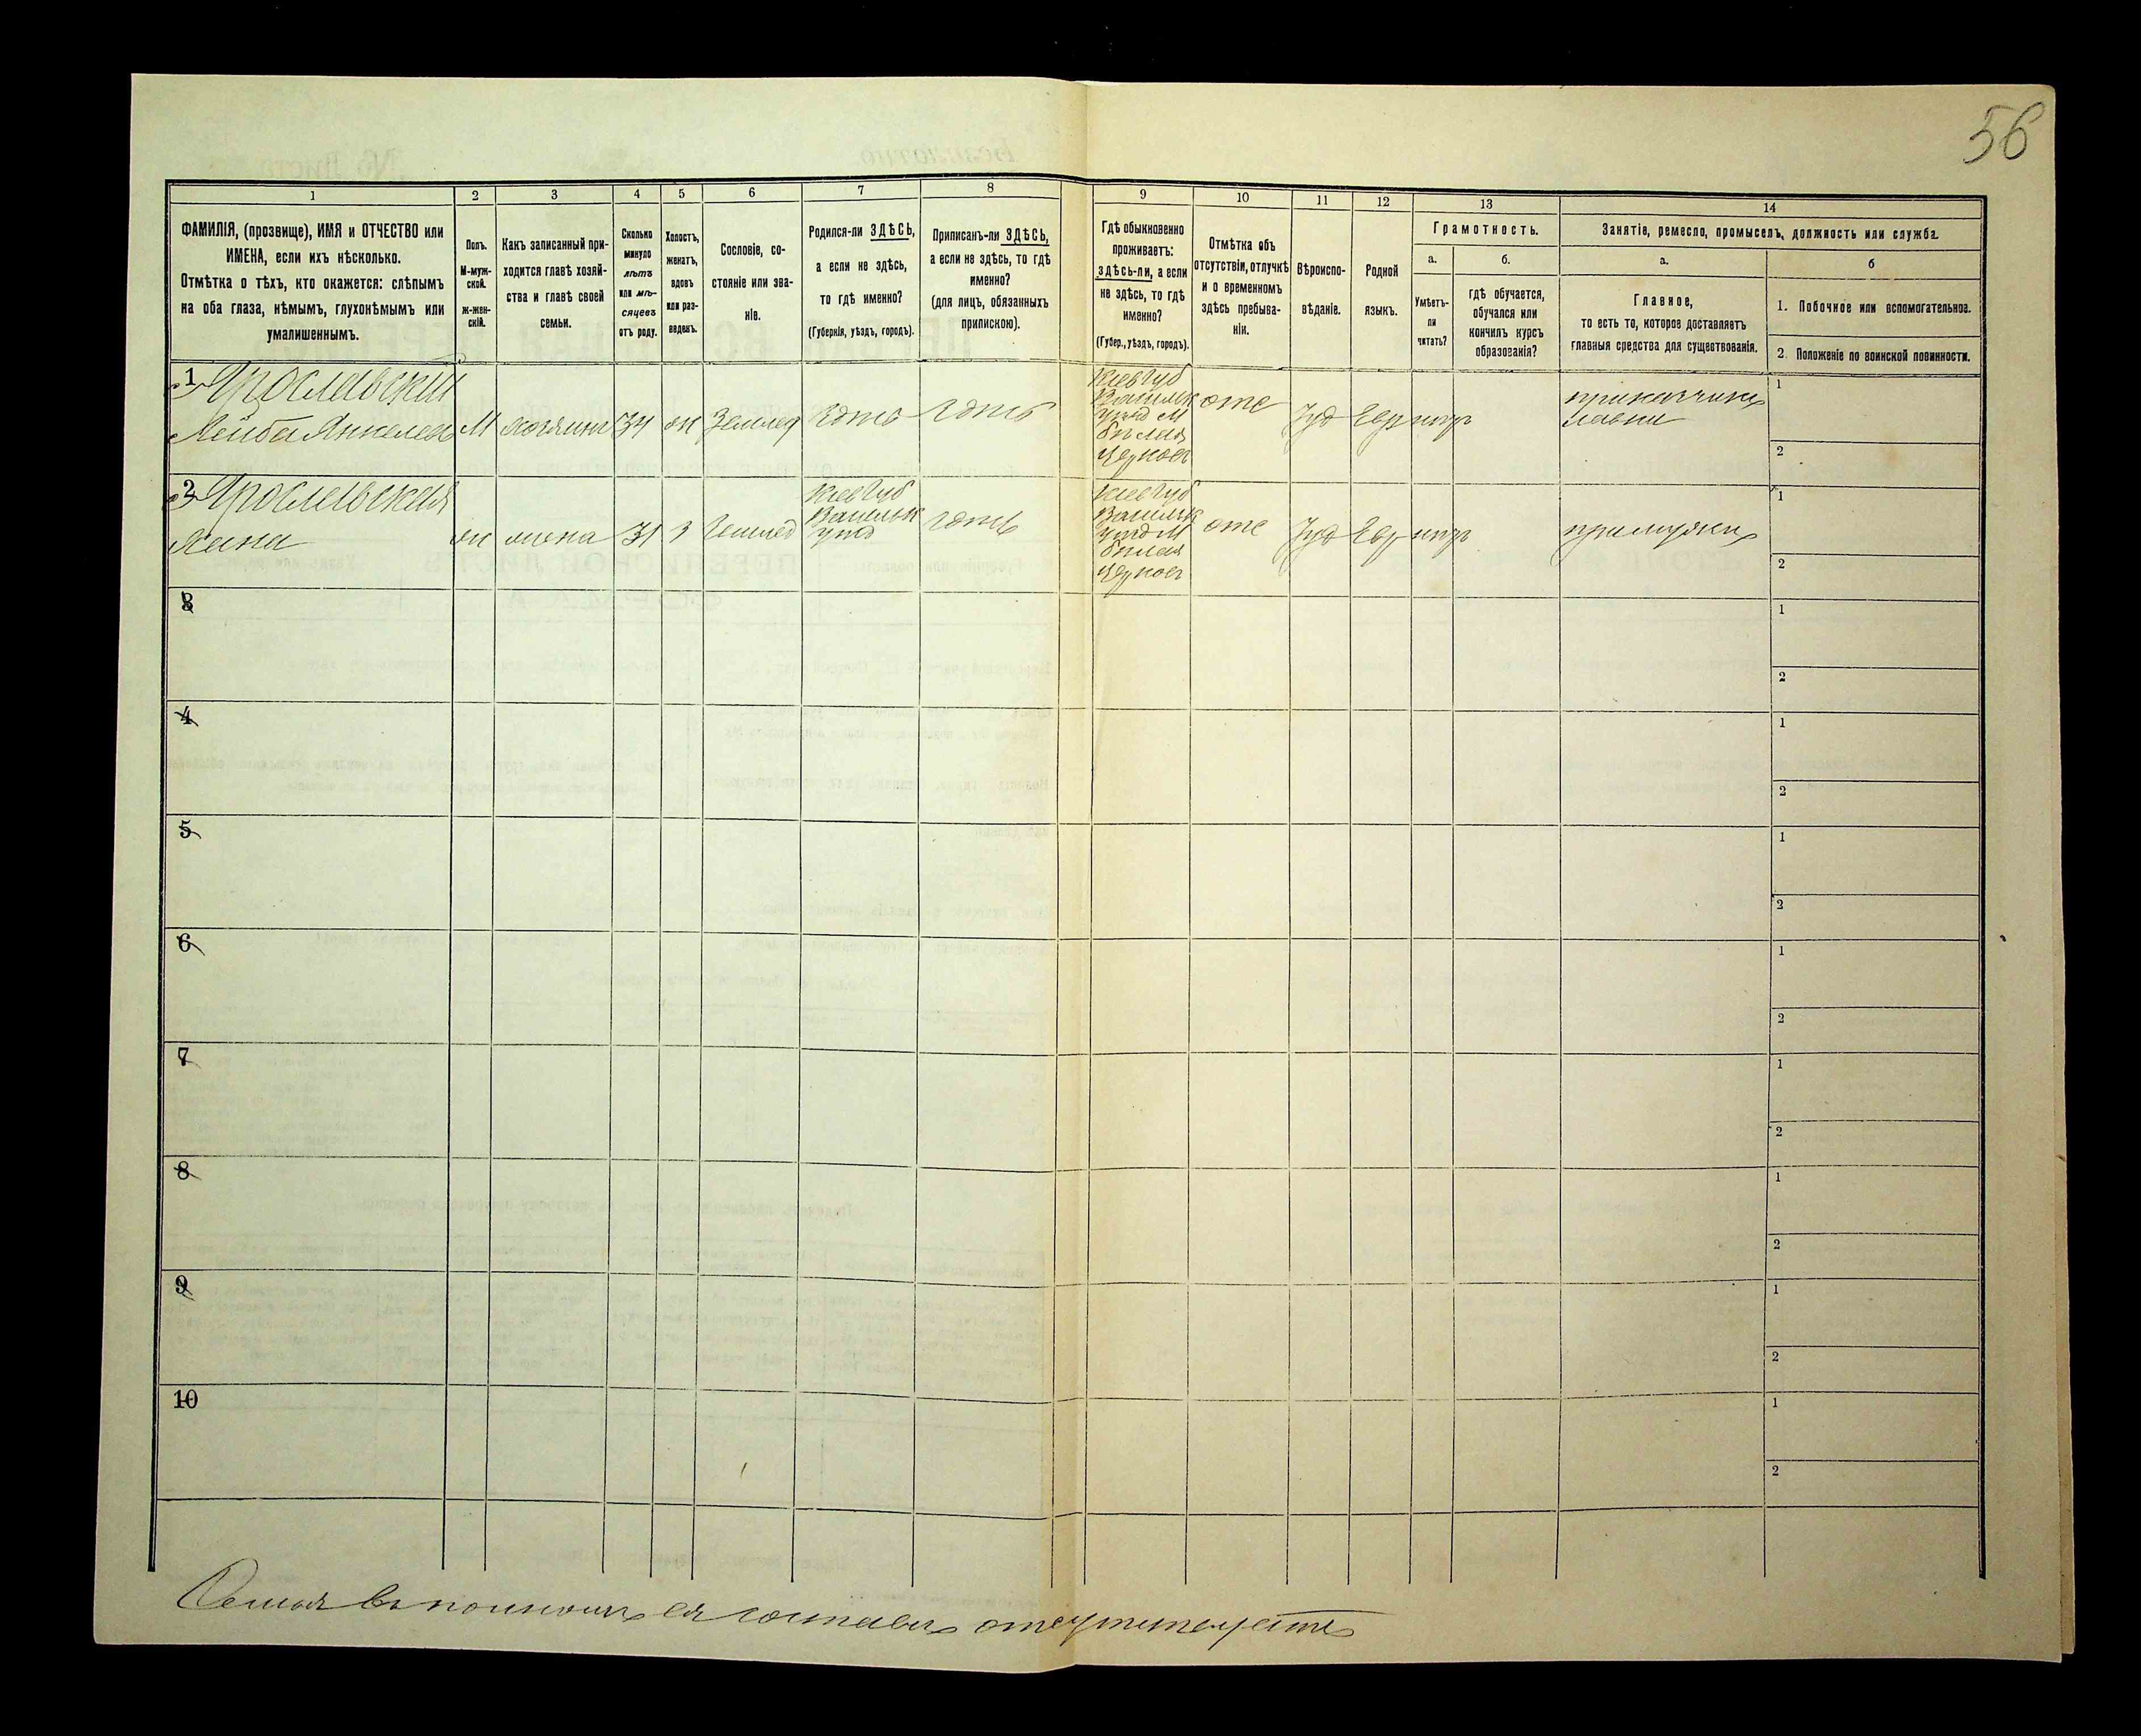 56
1
ФАМИЛІЯ, (прозвище), ИМЯ и ОТЧЕСТВО или
ИМЕНА, если ихъ нѣсколько.
Отмѣтка о тѣхъ, кто окажется: слѣпымъ
на оба глаза, нѣмымъ, глухонѣмымъ или
умалишеннымъ.
2
Полъ.
М-муж-
ской.
ж-жен-
скій.
3
Какъ записанный при-
ходится главѣ хозяй-
ства и главѣ своей
семьи.
4
Сколько
минуло
лѣтъ
или мѣ-
сяцевъ
отъ роду.
5
Холостъ,
женатъ,
вдовъ
или раз-
веденъ.
6
Сословіе, со-
стояніе или зва-
ніе.
7
Родился-ли ЗДѢСЬ,
а если не здѣсь,
то гдѣ именно?
(Губернія, уѣздъ, городъ).
8
Приписанъ-ли ЗДѢСЬ,
а если не здѣсь, то гдѣ
именно?
(для лицъ, обязанныхъ
припискою).
9
Гдѣ обыкновенно
проживаетъ:
здѣсь-ли, а если
не здѣсь, то гдѣ
именно?
(Губер., уѣздъ, городъ).
10
Отмѣтка объ
отсутствіи, отлучкѣ
и о временномъ
здѣсь пребыва-
ніи.
11
Вѣроиспо-
вѣданіе.
12
Родной
языкъ.
13
Грамотность.
а.
Умѣетъ-
ли
читать?
б.
гдѣ обучается,
обучался или
кончилъ курсъ
образованія?
14
Занятіе, ремесло, промыселъ, должность или служба.
а.
Главное,
то есть то, которое доставляетъ
главныя средства для существованія.
б
1. Побочное или вспомогательное.
2. Положеніе по воинской повинности.
1
Ярославскій
Лейба Янкелевъ
М
хозяинъ
34
ж
Землед
здѣсь
здѣсь
Кіев губ
Васильк
уѣзд М
Бѣлая
Церковь
отс
Іуд
Евр
1
2
2
Ярославская
ж
жена
31
з
Землед
Кіев губ
Васильк
уѣзд
здѣсь
Кіев губ
Васильк
уѣзд М
Бѣлая
Церковь
отс
Іуд
Евр
при мужѣ
1
2
3
1
2
4
1
2
5
1
2
6
1
2
7
1
2
8
1
2
9
1
2
10
1
2
Семья въ полномъ ея составѣ отсутствуетъ